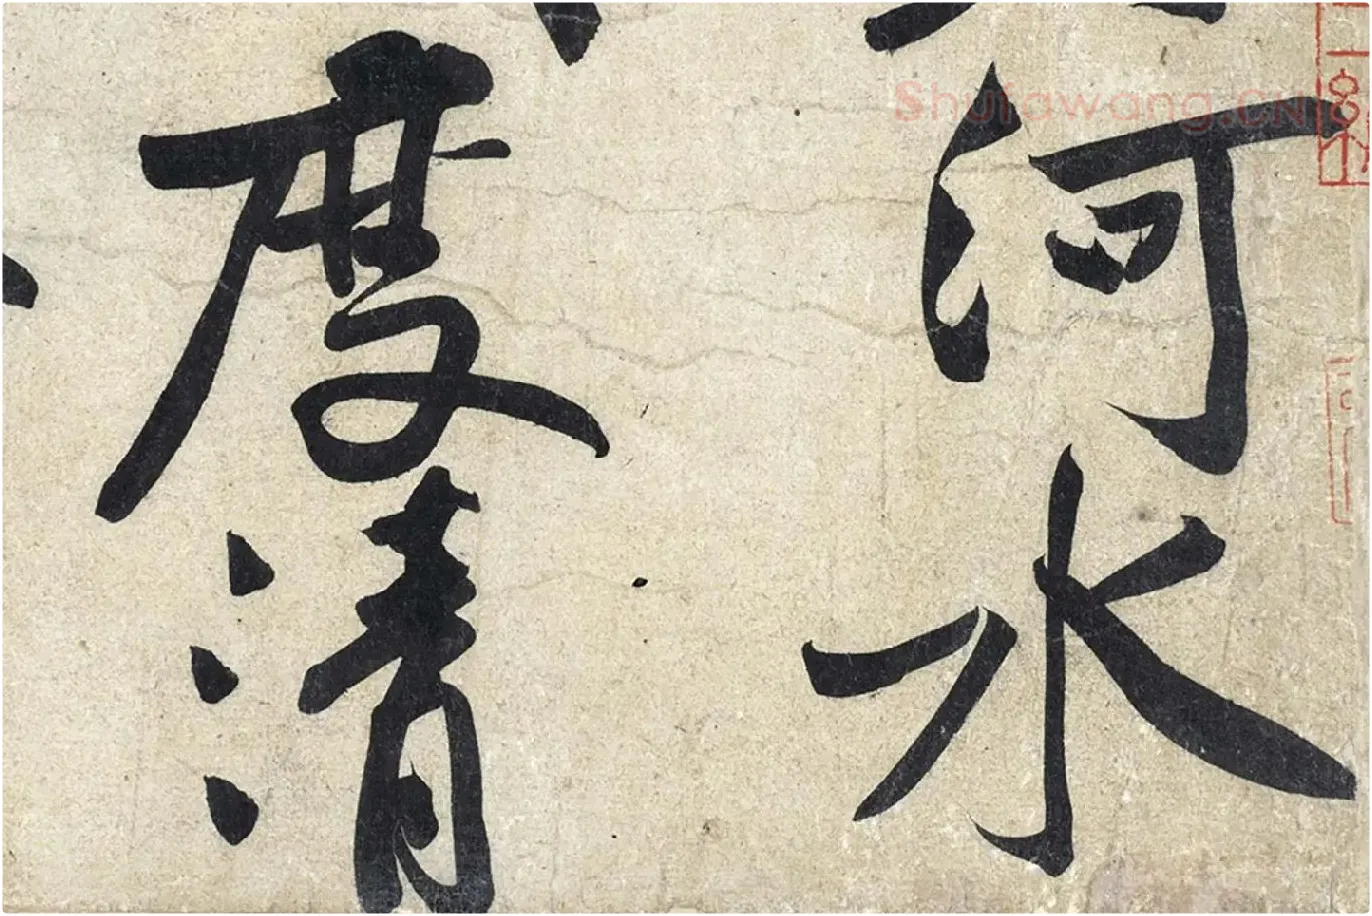 河水
度清
Shufawang.CN